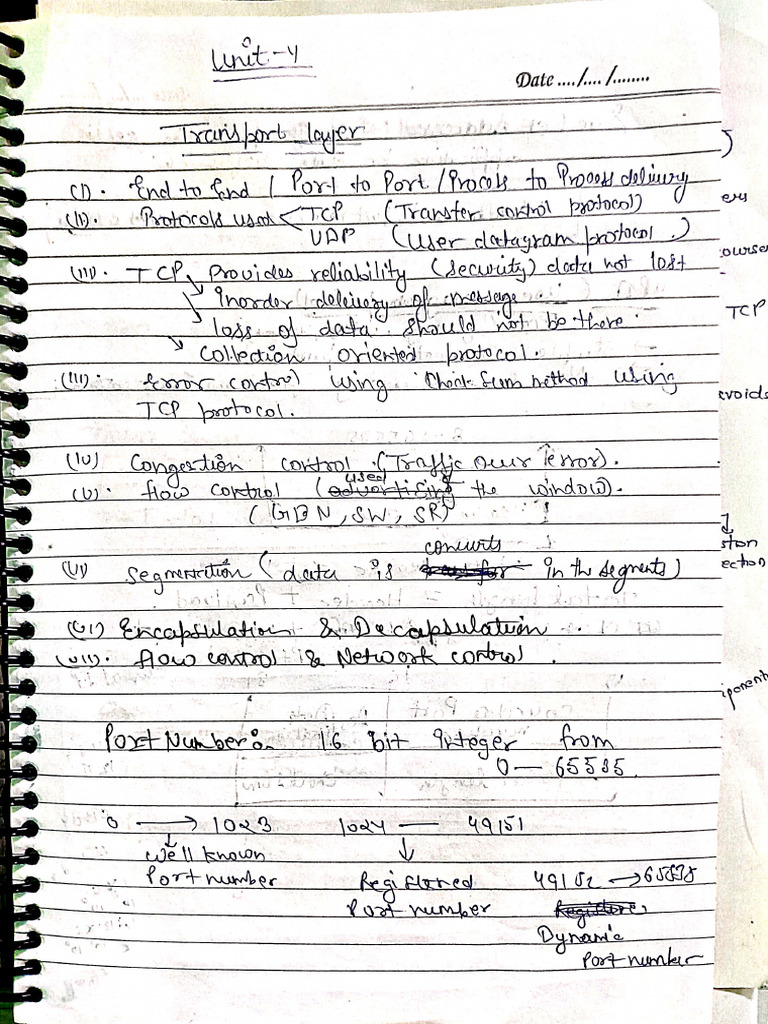 Unit-4
Date ..../..../........
Transport layer
(I). End to End / Port to Port / Process to Process delivery
(II). Protocols used TCP (Transfer control protocol)
UDP (User datagram protocol.)
(III). TCP Provides reliability (security) data not lost
Inorder delivery of message
loss of data should not be there.
Collection oriented protocol.
(III). Error control using Check Sum method using
TCP protocol.
(IV) Congestion control (Traffic over error).
(V). flow control (used the window).
(GBN, SW, SR)
(VI) segmentation (data is converts in the segments)
(VI) Encapsulation & Decapsulation.
(VII). flow control & Network control.
Port Number:- 16 bit integer from
0 — 65535
0 → 1023 1024 — 49151
well known
Port number Registered 49152 → 65535
Port number
Dynamic
Port number
ers
ourse
TCP
avoids
ection
ponent